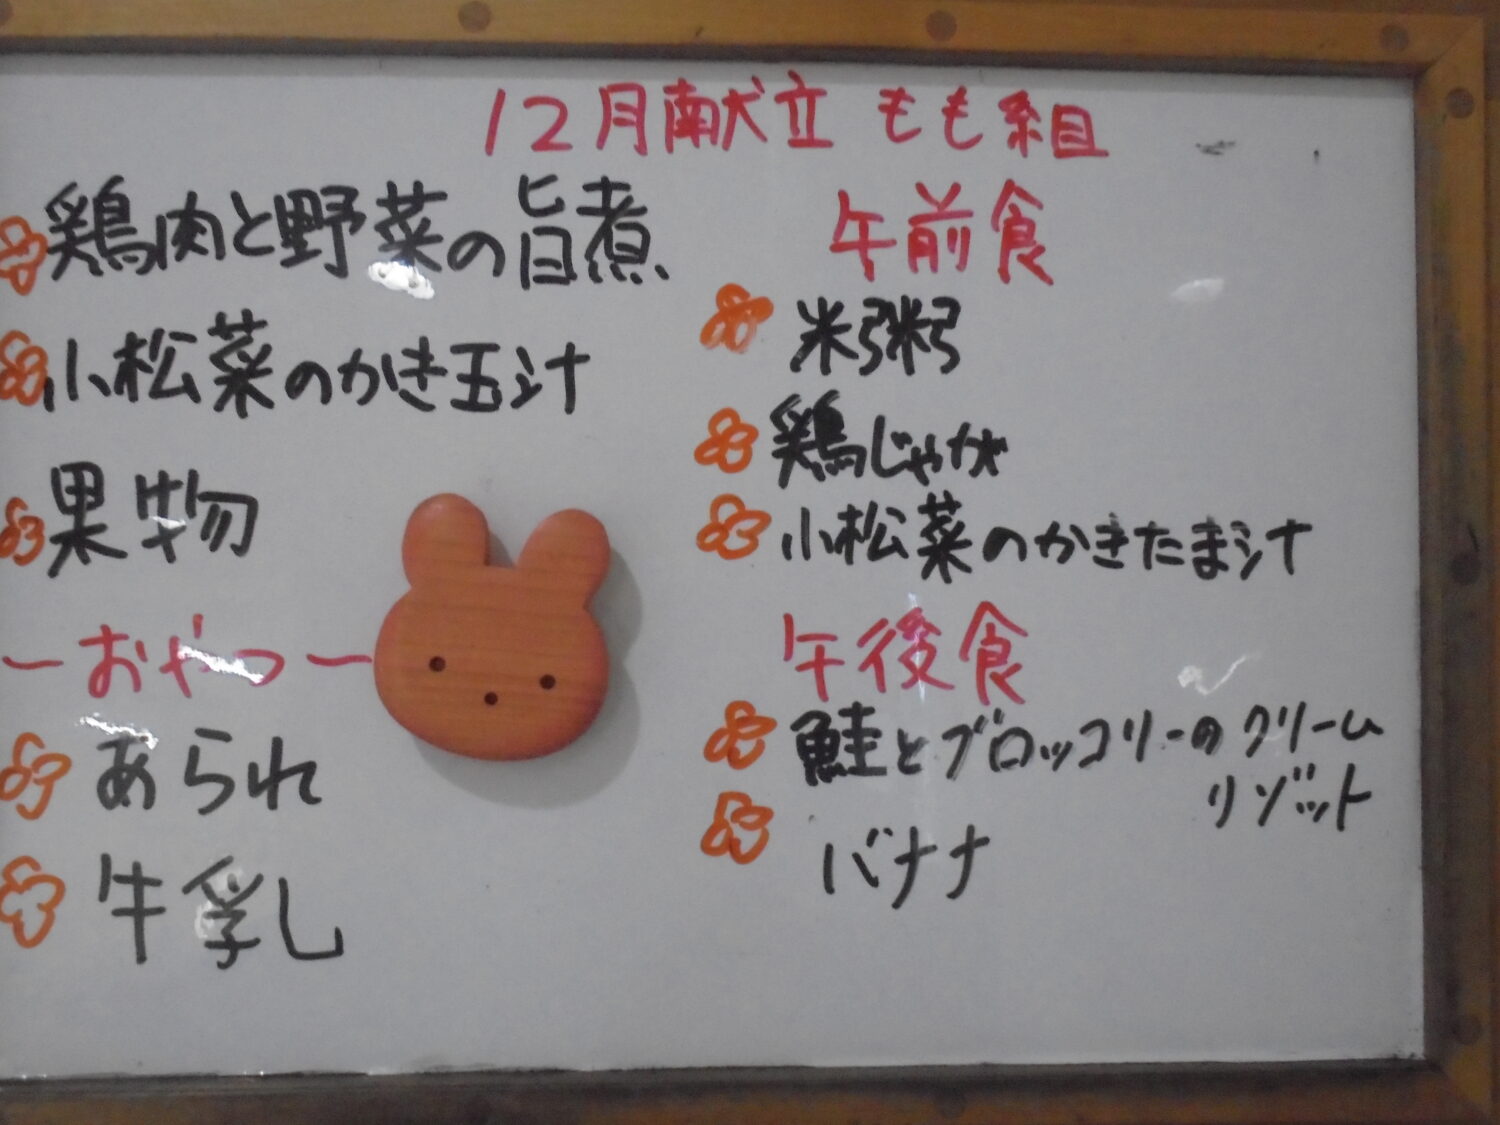 12月献立 もも組
鶏肉と野菜の旨煮
小松菜のかき玉汁
果物
ーおやつー
あられ
牛乳
午前食
米粥
鶏じゃが
小松菜のかきたま汁
午後食
鮭とブロッコリーのクリーム
リゾット
バナナ